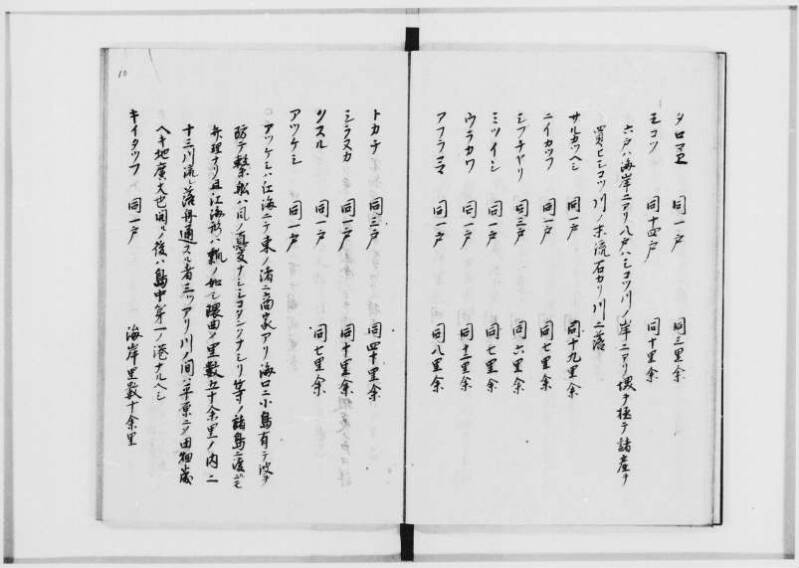 タロマヱ 同一戸 同三里余
モコツ 同十四戸 同十里余
六戸ハ海岸ニアリ八戸ハシコツ川ノ岸ニアリ堺ヲ極テ諸産ヲ
買ヒシコツ川ノ末流石カリ川ニ落
サルカツヘシ 同一戸 同十九里余
ニイカツフ 同一戸 同七里余
シフチヤリ 同三戸 同六里余
ミツイシ 同一戸 同七里余
ウラカワ 同一戸 同十二里余
アフラコマ 同一戸 同八里余
10
トカチ 同三戸 同四十里余
シラヌカ 同一戸 同十里余
クスル 同一戸 同七里余
アツケシ 同一戸
アツケシハ江海ニテ東ノ渚ニ商家アリ海口ニ小島有テ波ヲ
防テ繋船ハ風ノ憂ナシシコタンクナシリ等ノ諸島ニ渡ルモ
弁理ナリ且江海形ハ瓢ノ如シ隈曲ノ里数五十余里ノ内ニ
十三川流レ落舟通スル者三ツアリ川ノ間ハ平原ニタ田畑歳
ヘキ地廣大也開ルノ後ハ島中第一ノ港ナルヘシ
キイタツフ 同一戸 海岸里数十余里